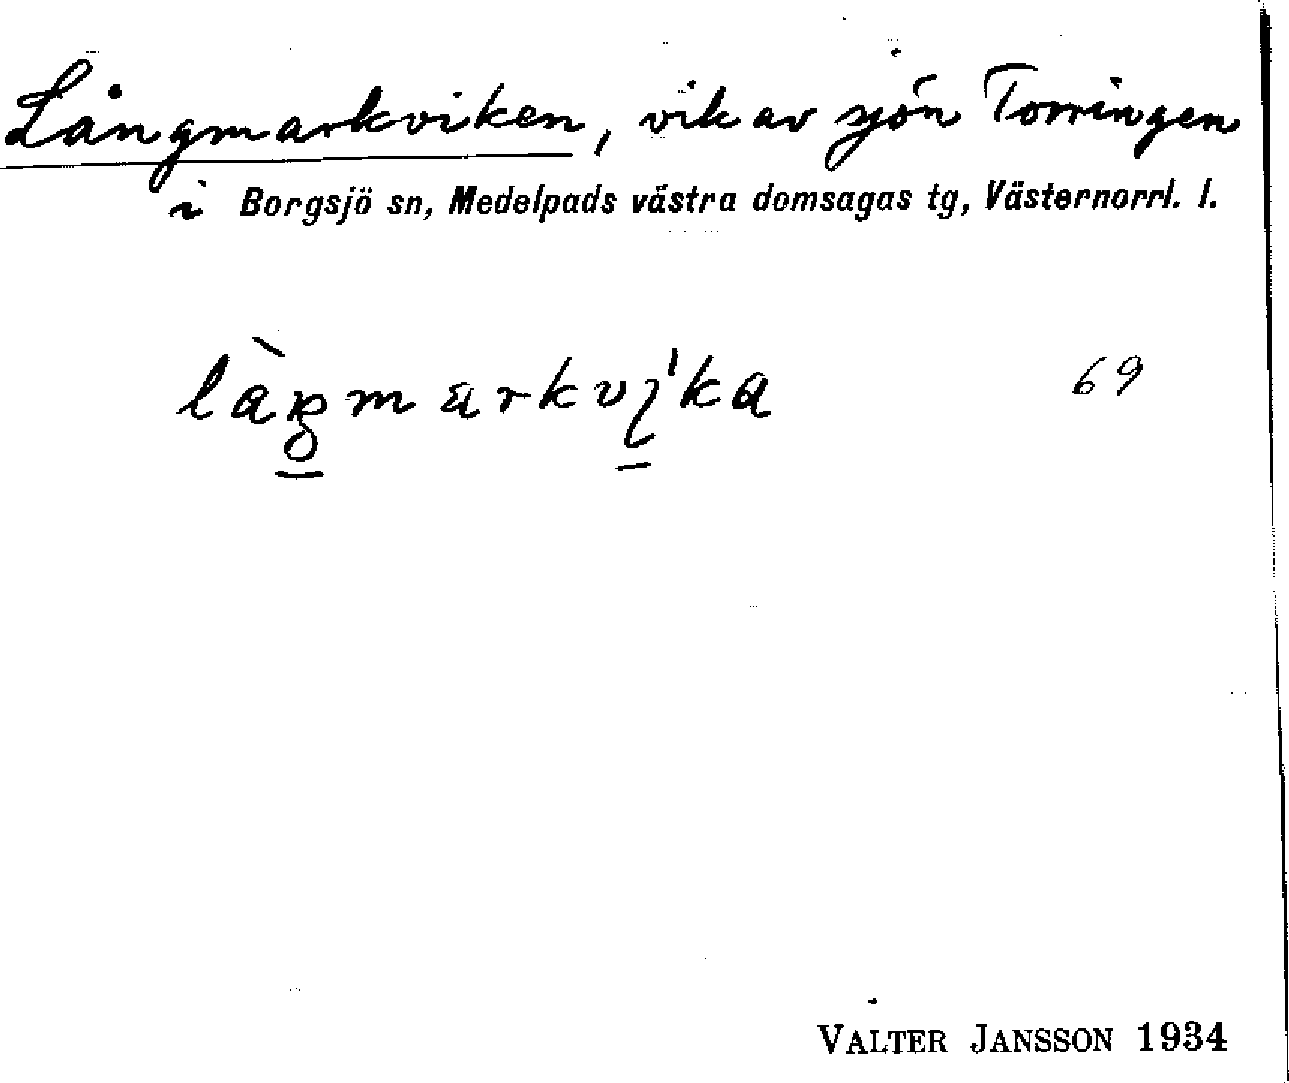 Långmarkviken, vik av sjön Torringen
i Borgsjö sn, Medelpads västra domsagas tg, Västernorrl. l.
làŋmarkvı̍ka 69
VALTER JANSSON 1934